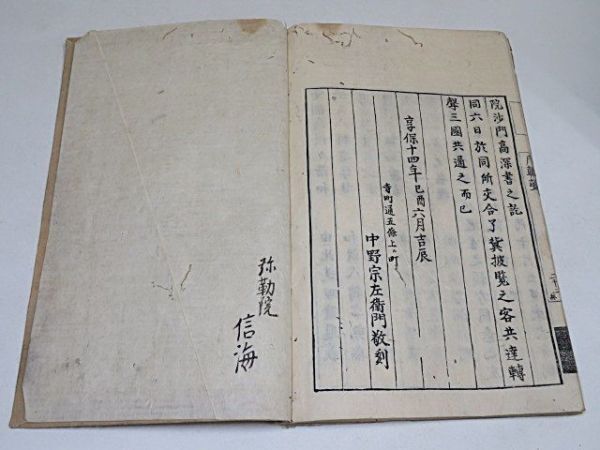 院沙門高深書之訖
同六日於同所交合了冀披覧之客共達轉
聲三國共通之而已
享保十四年己酉六月吉辰
寺町通五條上ル町
中野宗左衛門敬刻
弥勒院
信海